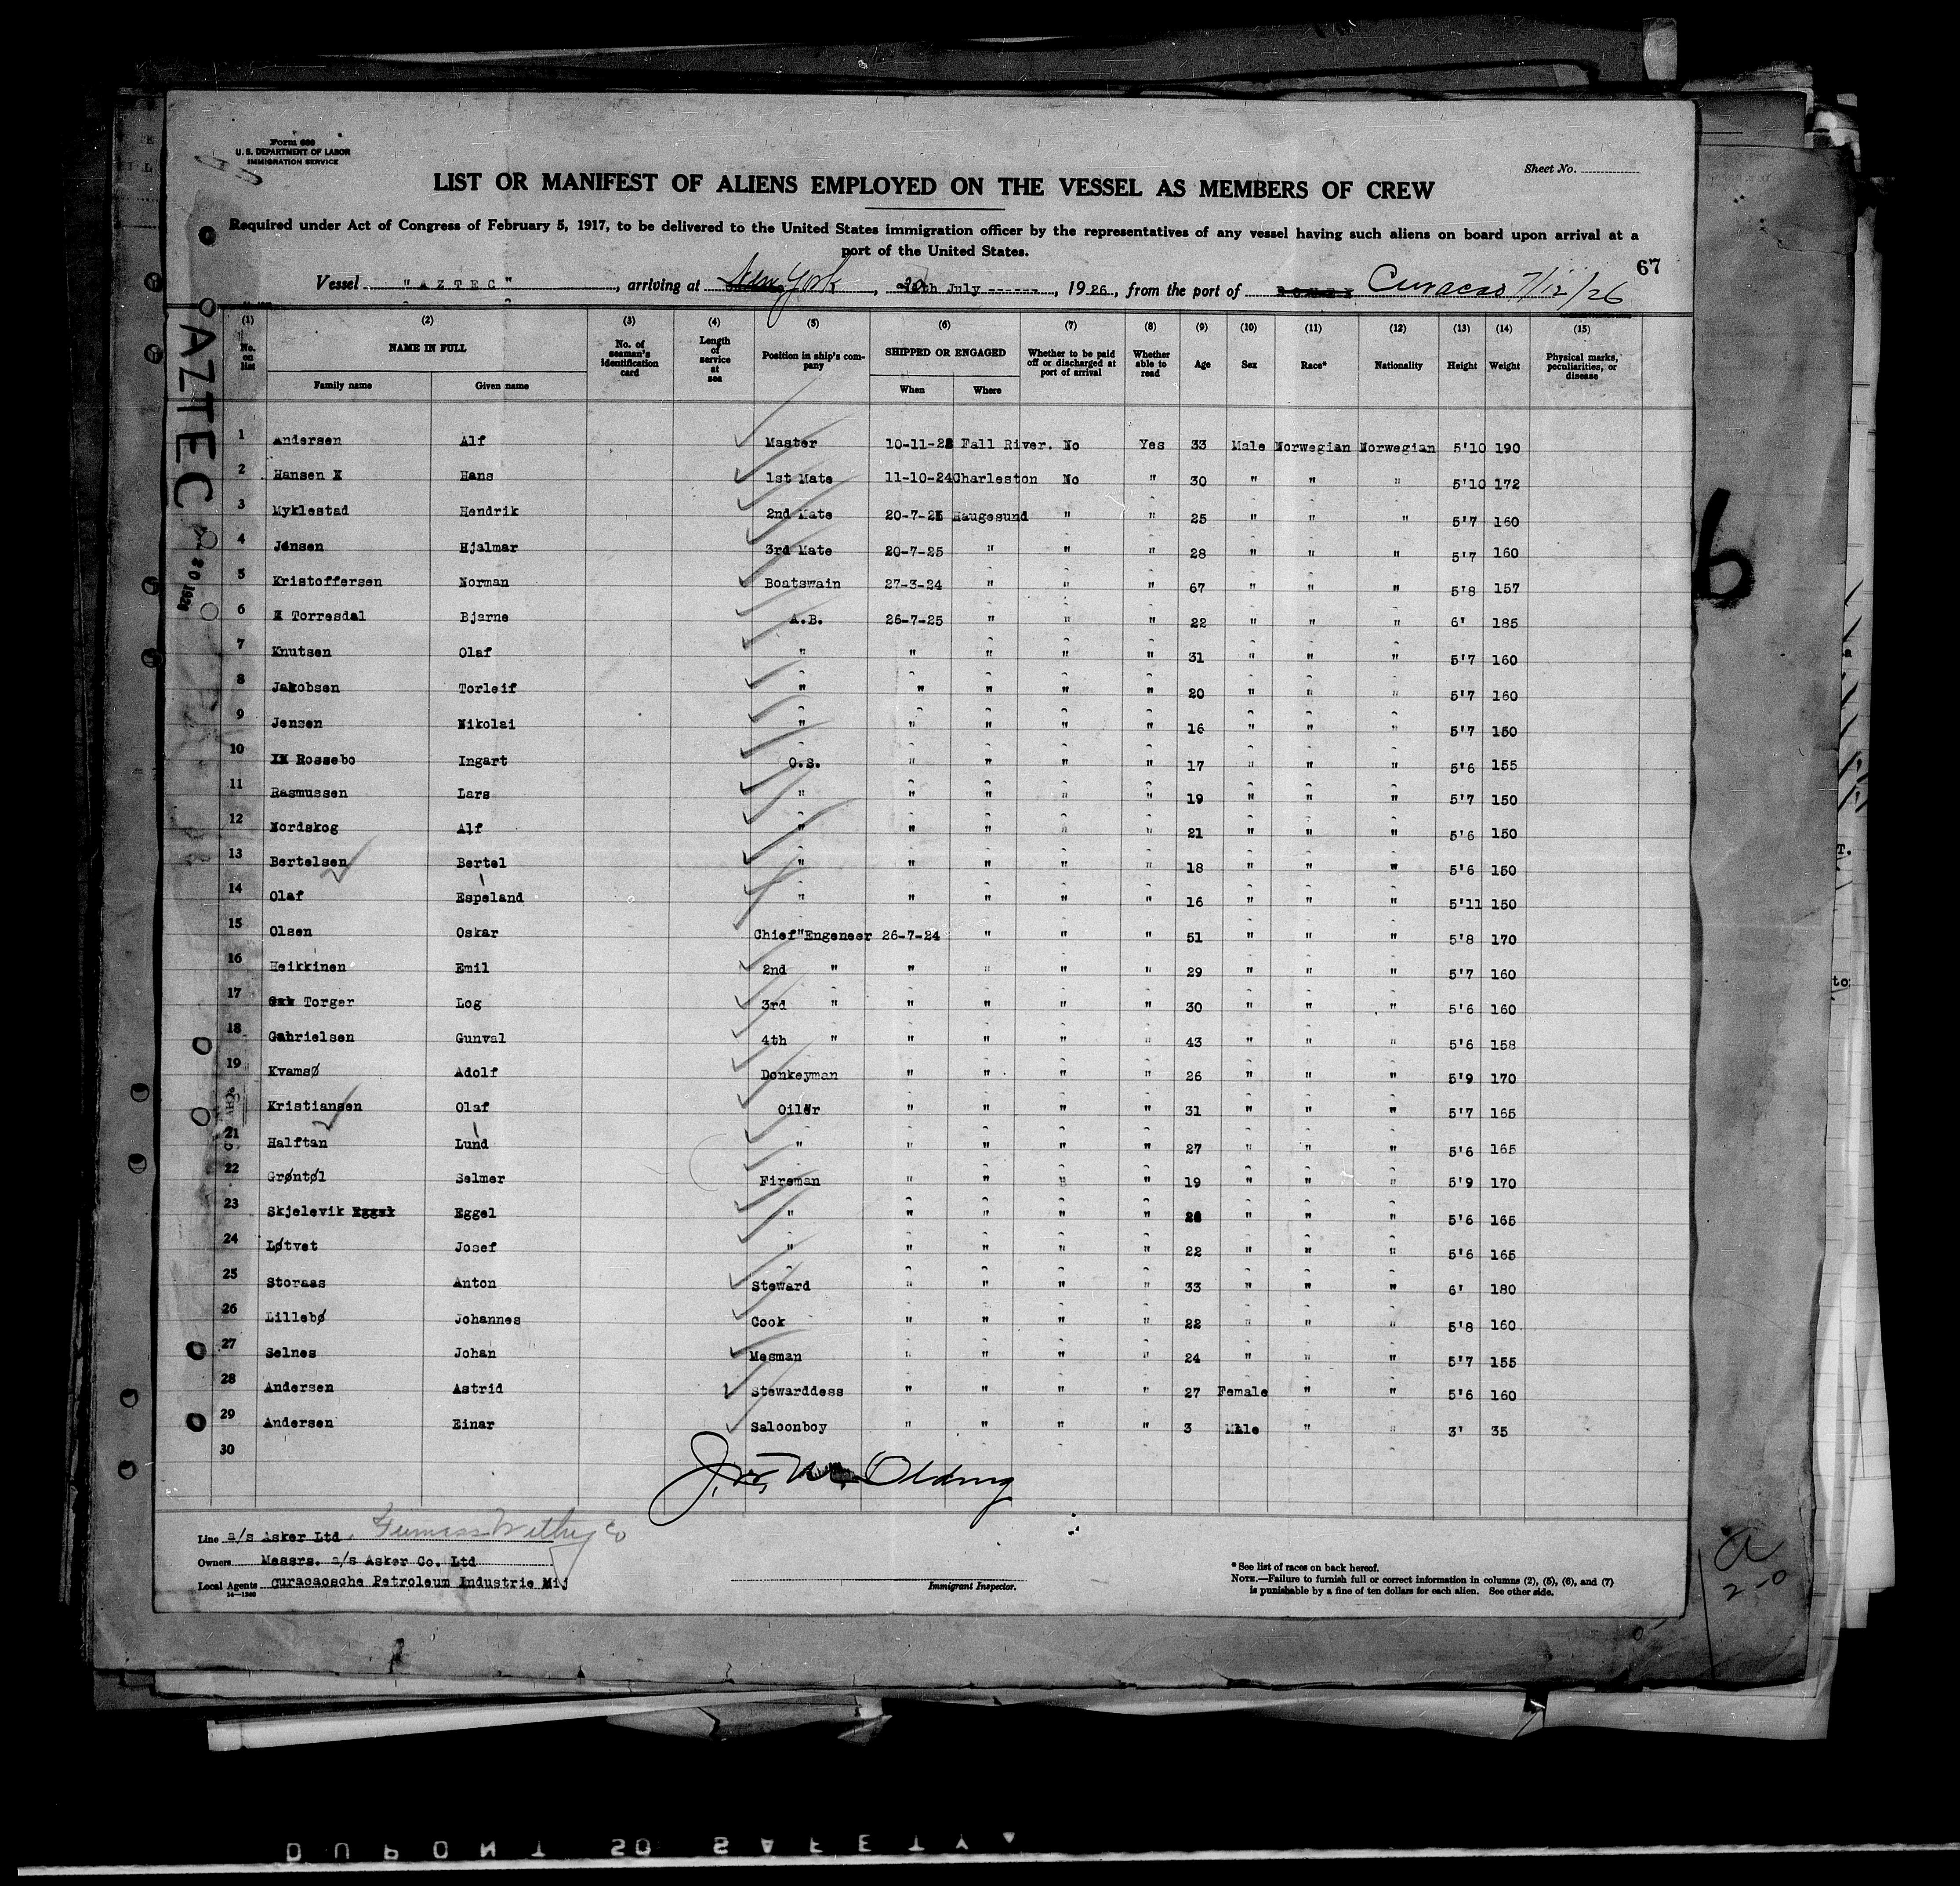 Form 689
U. S. DEPARTMENT OF LABOR
IMMIGRATION SERVICE
Sheet No.
LIST OR MANIFEST OF ALIENS EMPLOYED ON THE VESSEL AS MEMBERS OF CREW
Required under Act of Congress of February 5, 1917, to be delivered to the United States immigration officer by the representatives of any vessel having such aliens on board upon arrival at a
port of the United States.
67
Vessel "AZTEC", arriving at New York, 20th July ------, 1926, from the port of Curacao 7/12/26
AZTEC
(1) (2) (3) (4) (5) (6) (7) (8) (9) (10) (11) (12) (13) (14) (15)
No. on list NAME IN FULL No. of seaman's identification card Length of service at sea Position in ship's company SHIPPED OR ENGAGED Whether to be paid off or discharged at port of arrival Whether able to read Age Sex Race* Nationality Height Weight Physical marks, peculiarities, or disease
Family name Given name When Where
1 Andersen Alf Master 10-11-22 Fall River. No Yes 33 Male Norwegian Norwegian 5'10 190
2 Hansen X Hans 1st Mate 11-10-24 Charleston No " 30 " " " 5'10 172
3 Myklestad Hendrik 2nd Mate 20-7-25 Haugesund " " 25 " " " 5'7 160
4 Jensen Hjalmar 3rd Mate 20-7-25 " " " 28 " " " 5'7 160
5 Kristoffersen Norman Boatswain 27-3-24 " " " 67 " " " 5'8 157
6 Torresdal Bjarne A.B. 26-7-25 " " " 22 " " " 6' 185
7 Knutsen Olaf " " " " " 31 " " " 5'7 160
8 Jakobsen Torleif " " " " " 20 " " " 5'7 160
9 Jensen Nikolai " " " " " 16 " " " 5'7 150
10 Rossebo Ingart O.S. " " " " 17 " " " 5'6 155
11 Rasmussen Lars " " " " " 19 " " " 5'7 150
12 Nordskog Alf " " " " " 21 " " " 5'6 150
13 Bertelsen Bertel " " " " " 18 " " " 5'6 150
14 Olaf Espeland " " " " " 16 " " " 5'11 150
15 Olsen Oskar Chief"Engeneer 26-7-24 " " " 51 " " " 5'8 170
16 Heikkinen Emil 2nd " " " " " 29 " " " 5'7 160
17 Torger Log 3rd " " " " " 30 " " " 5'6 160
18 Gabrielsen Gunval 4th " " " " " 43 " " " 5'6 158
19 Kvamsø Adolf Donkeyman " " " " 26 " " " 5'9 170
Kristiansen Olaf Oiler " " " " 31 " " " 5'7 165
21 Halftan Lund " " " " " 27 " " " 5'6 165
22 Grøntøl Selmer Fireman " " " " 19 " " " 5'9 170
23 Skjelevik Eggel " " " " " " " " 5'6 165
24 Løtvet Josef " " " " " 22 " " " 5'6 165
25 Storaas Anton Steward " " " " 33 " " " 6' 180
26 Lillebø Johannes Cook " " " " 22 " " " 5'8 160
27 Selnes Johan Mesman " " " " 24 " " " 5'7 155
28 Andersen Astrid Stewarddess " " " " 27 Female " " 5'6 160
29 Andersen Einar Saloonboy " " " " 3 Male " " 3' 35
30
Line a/s Asker Ltd. Furness Withy Co
Owners Messrs. a/s Asker Co. Ltd
Local Agents Curacaosche Petroleum Industrie Mij
14—1240
Immigrant Inspector.
* See list of races on back hereof.
NOTE.—Failure to furnish full or correct information in columns (2), (5), (6), and (7)
is punishable by a fine of ten dollars for each alien. See other side.
a
2-0
DUPONT SO SAFETY